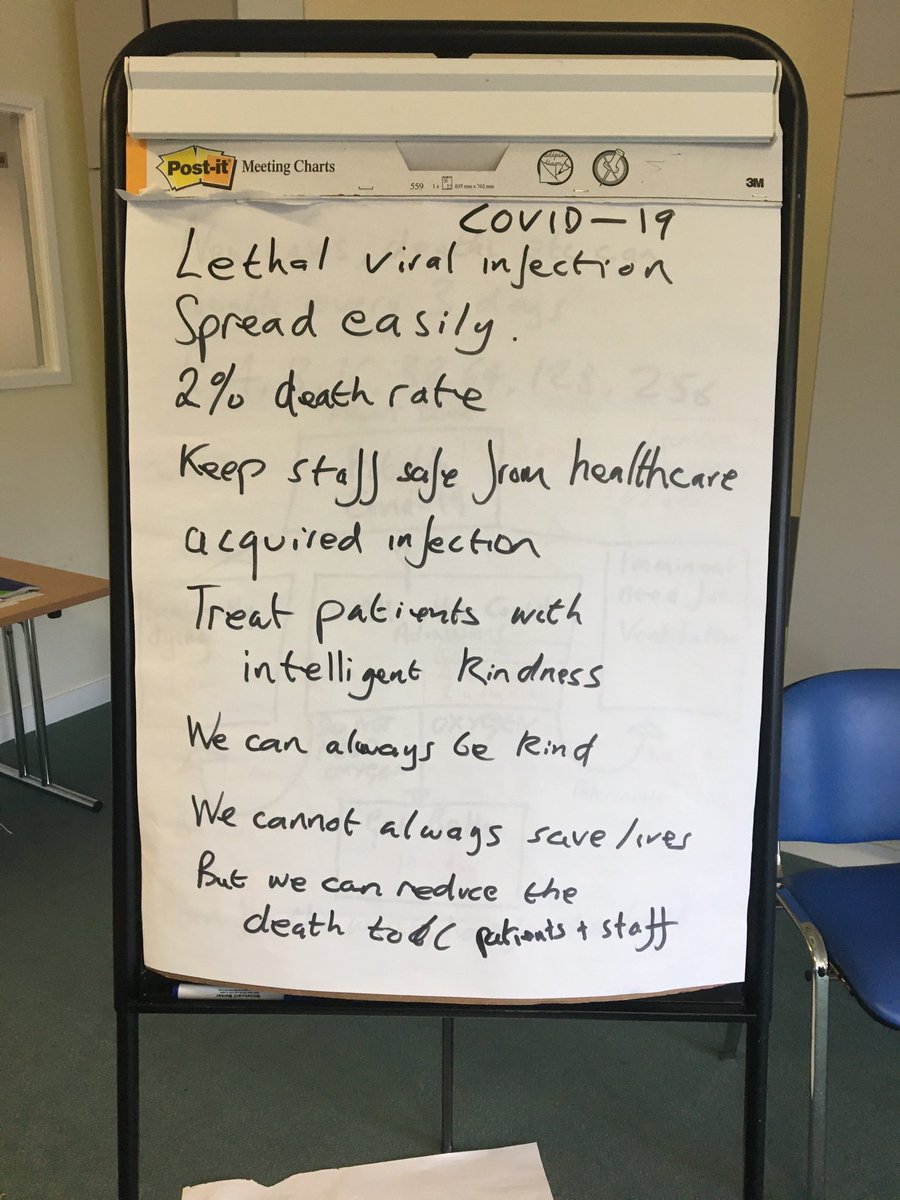 Post-it® Meeting Charts
559 1 x 635 mm x 762 mm
3M
COVID-19
Lethal viral infection
Spread easily.
2% death rate
Keep staff safe from healthcare
acquired infection
Treat patients with
intelligent kindness
We can always be kind
We cannot always save lives
But we can reduce the
death toll patients + staff